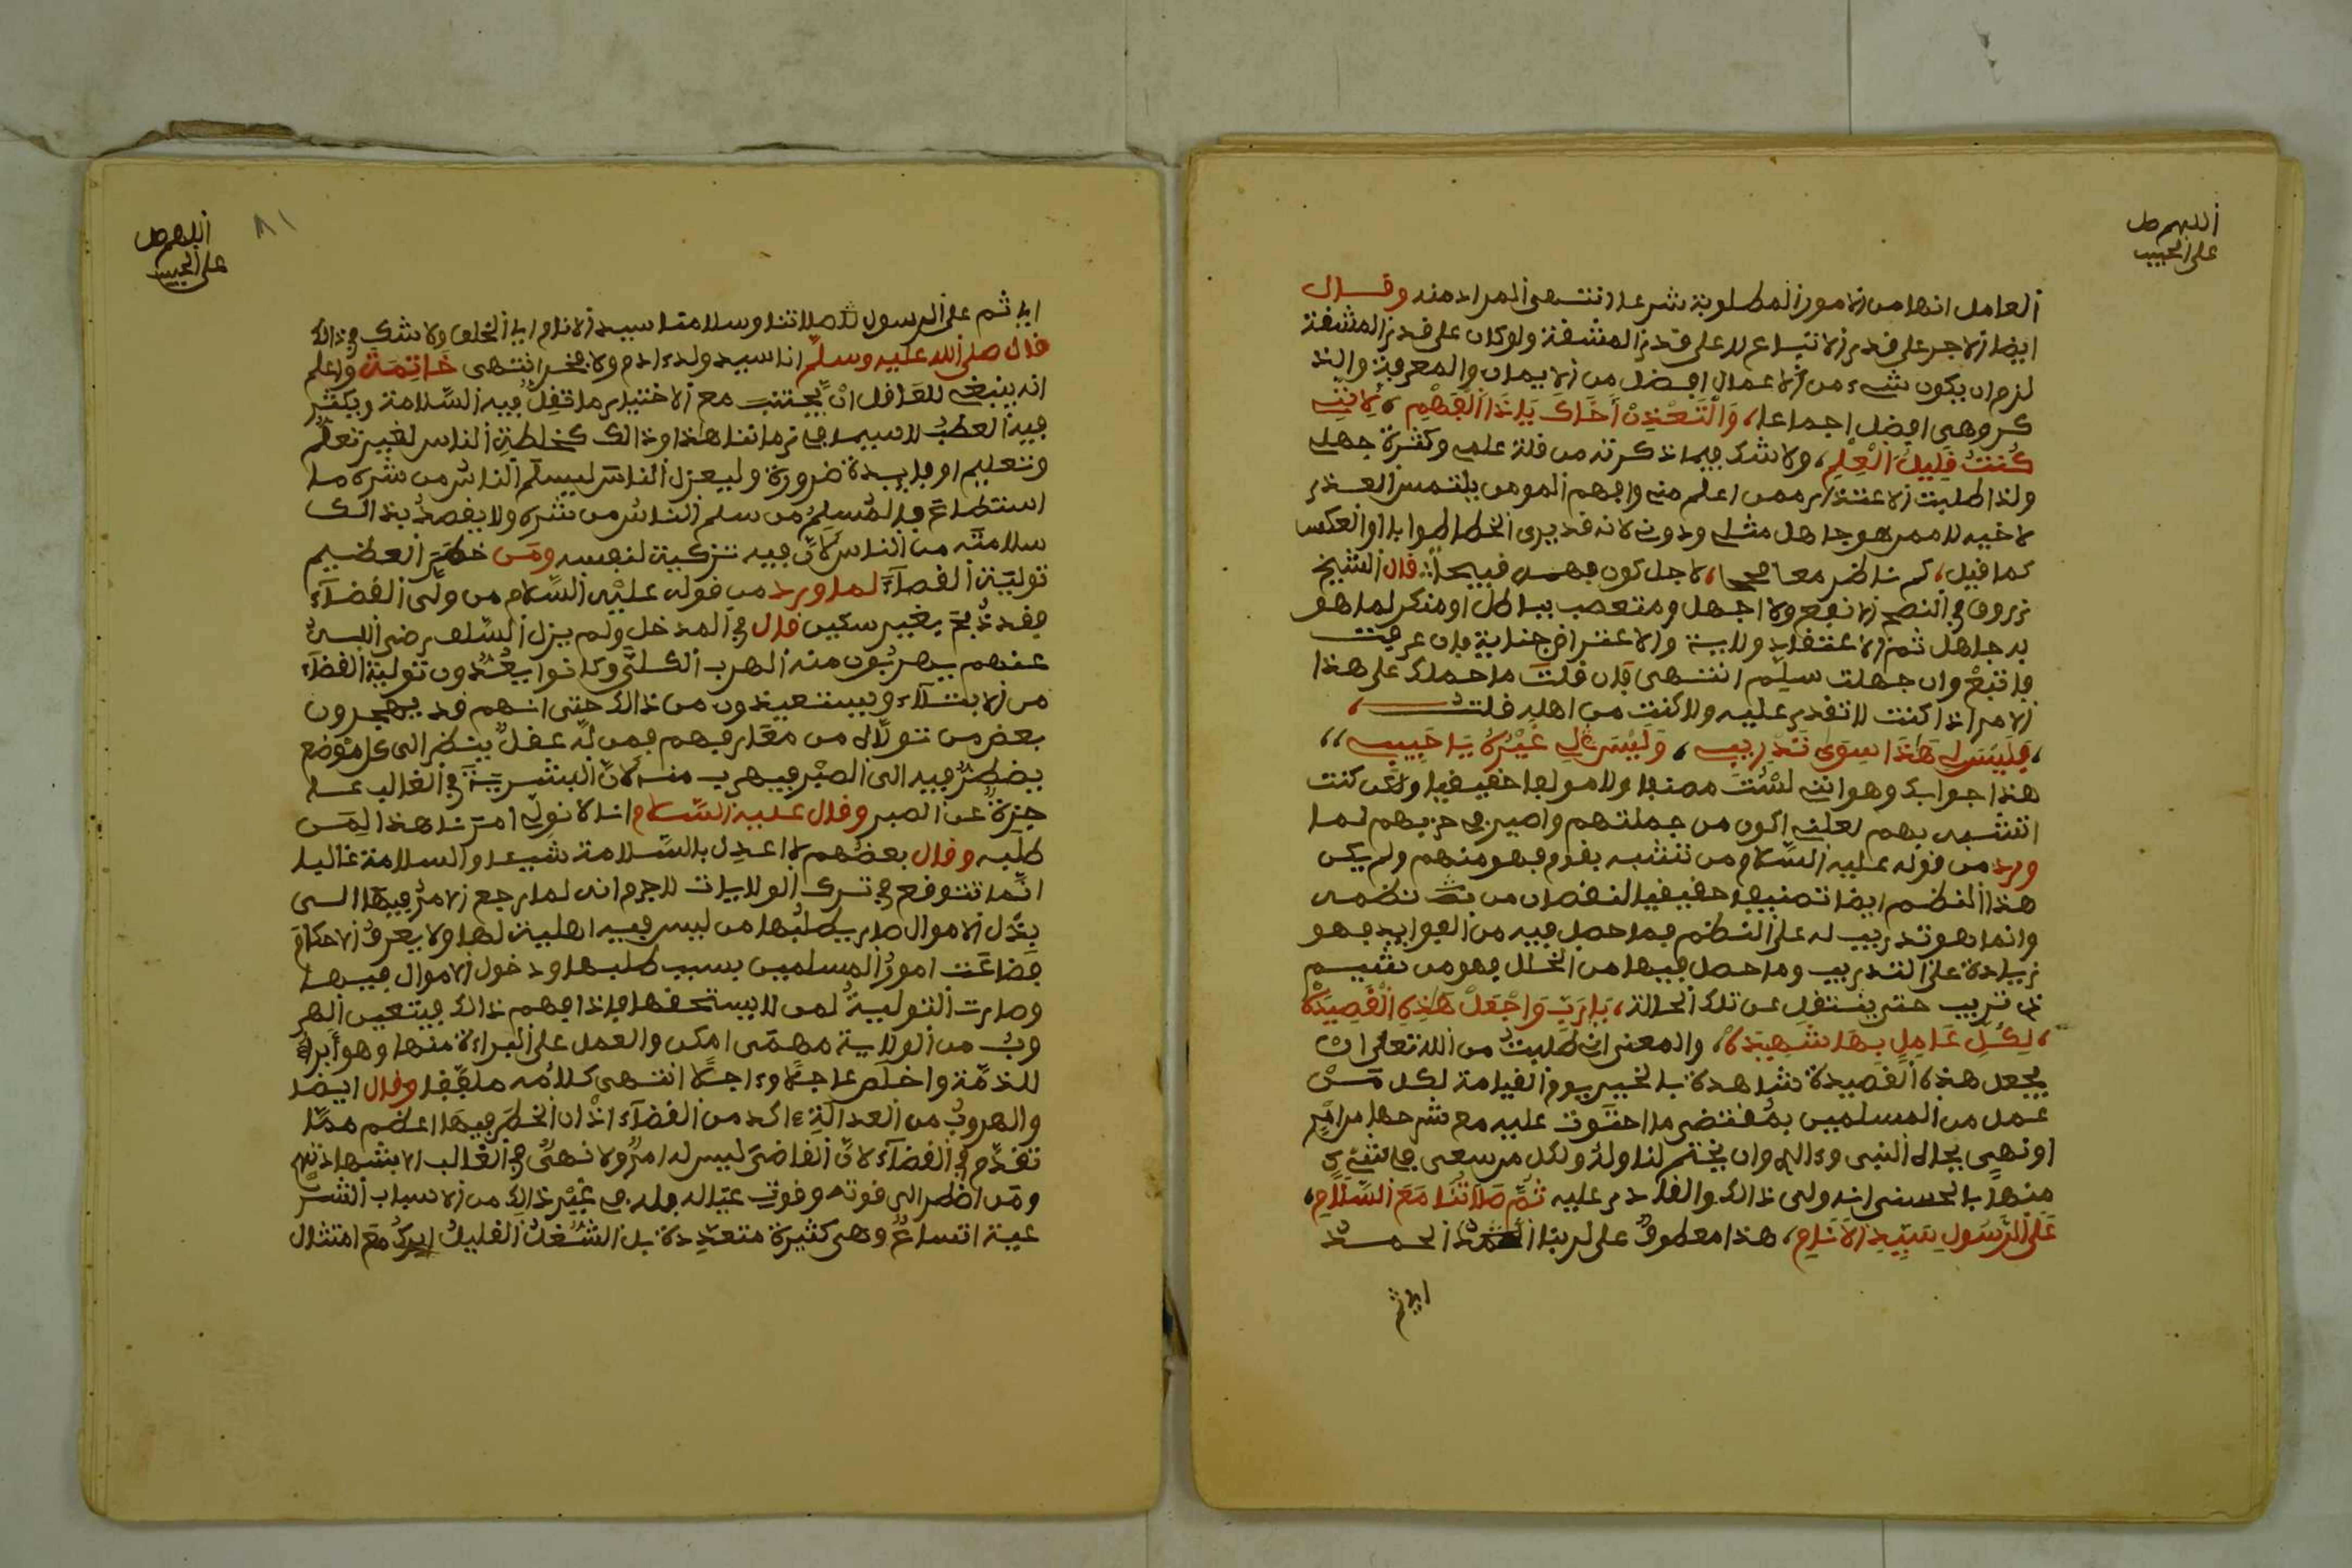 اللهم صل
على الحبيب
العامل انها من الامور المطلوبة شرعا انتهى المراد منه وقال
ايضا الاجر على قدر الاتباع لا على قدر المشقة ولو كان على قدر المشقة
لزم ان يكون شيء من الاعمال افضل من الايمان والمعرفة والذ
كر وهي افضل اجماعا، وَالْتَعْذِرْ أَخَاكَ يَا ذَا الْفَهْمِ، لِأَنِّي
كُنْتُ قَلِيلَ الْعِلْمِ، ولا شك فيما ذكرته من قلة علمي وكثرة جهلي
ولذا طلبت الاعتذار ممن اعلم مني وافهم المومن يلتمس العذر
لاخيه لا ممن هو جاهل مثلي ودوني لانه قد يرى الخطا صوابا او العكس
كما قيل، كم ناظر معا، لاجل كون فهمه قبيحا، قال الشيخ
زروق في النصح الانفع ولا اجهل ومتعصب بباطل او منكر لما هو
به جاهل ثم الاعتقاد ولاية والاعتراض جناية فان عرفت
فاتبع وان جهلت سلم انتهى فان قلت ما حملك على هذا
الامر اذا كنت لا تقدر عليه ولا كنت من اهله قلت
، فَلَيْسَ لِي هَذَا سِوَى تَدْرِيبِ، وَلَيْسَ لِي غَيْرُهُ يَا حَبِيبِ،،
هذا جوابك وهو اني لست مصنفا ولا مولفا حقيقيا ولكن كنت
اتشبه بهم لعلني اكون من جملتهم واصير في حزبهم لما
ورد من قوله عليه السلام من تشبه بقوم فهو منهم ولم يكن
هذا النظم ايضا تصنيفا حقيقيا لنقصان من نظمه
وانما هو تدريب له على النظم فما حصل فيه من الفوايد فهو
زيادة على التدريب وما حصل فيها من الخلل فهو من شيم
ذي تدريب حتى ينتقل عن تلك الحالة، يَا رَبِّ وَاجْعَلْ هَذِهِ الْقَصِيدَةْ
، لِكُلِّ عَامِلٍ بِهَا شَهِيدَةْ، والمعنى اني طلبت من الله تعالى ان
يجعل هذه القصيدة شاهدة بالخير يوم القيامة لكل من
عمل من المسلمين بمقتضى ما احتوت عليه مع شرحها من امر
او نهي بجاه النبي وءاله وان يختم لنا وله ولكل من سعى في شيء
منها بالحسنى انه ولي ذالك والقادر عليه ثُمَّ صَلَاتُنَا مَعَ السَّلَامِ،
عَلَى الرَّسُولِ سَيِّدِ الْأَنَامِ، هذا معطوف على لربنا الحمد
اي ثم
اللهم صل
على الحبيب
٨١
اي ثم على الرسول صلاتنا وسلامنا سيد الانام اي الخلق ولا شك في ذالك
قال صلى الله عليه وسلم انا سيد ولد ءادم ولا فخر انتهى خَاتِمَة واعلم
انه ينبغي للعاقل ان يجتنب مع الاختيار ما تقل فيه السلامة ويكثر
فيه العطب لا سيما في زماننا هذا وذالك كمخالطة الناس لغير تعلم
وتعليم او فايدة ضرورة وليعزل الناس ليسلم الناس من شره ما
استطاع فالمسلم من سلم الناس من شره ولا يقصد بذالك
سلامته من الناس لان فيه تزكية لنفسه ومن خطر العظيم
تولية القضاء لما ورد من قوله عليه السلام من ولي القضاء
فقد ذبح بغير سكين قال في المدخل ولم يزل السلف رضي الله
عنهم يهربون منه الهرب الكلي وكانوا يعدون تولية القضاء
من الابتلاء ويستعيذون من ذالك حتى انهم قد يهجرون
بعض من تولاه من معارفهم فمن له عقل ينظر الى كل موضع
يضطر فيه الى الصبر فيهرب منه لان البشرية في الغالب عا
جزة عن الصبر وقال عليه السلام انا لا نولي امرنا هذا لمن
طلبه وقال بعضهم لا اعدل بالسلامة شيعا والسلامة غاليا
انما تتوقع في ترك الولايات لا جرم انه لما رجع الامر فيها الى
بذل الاموال صار يطلبها من ليس فيه اهلية لها ولا يعرف الاحكام
فضاعت امور المسلمين بسبب طلبها ودخول الاموال فيها
وصارت التولية لمن لا يستحقها فاذا فهم ذالك فيتعين الهر
وب من الولاية مهمى امكن والعمل على البراءة منها وهو أبرأ
للذمة واخلص عاجلا وءاجلا انتهى كلامه ملفقا وقال ايضا
والهروب من العدالة ءاكد من القضاء اذ ان الخطر فيها اعظم مما
تقدم في القضاء لان القاضي ليس له امر ولا نهي في الغالب الا بشهادتهم
ومن اضطر الى قوته وقوت عياله فله في غير ذالك من الاسباب الشر
عية اتساع وهي كثيرة متعددة بل الشغل القليل ابرك مع امتثال